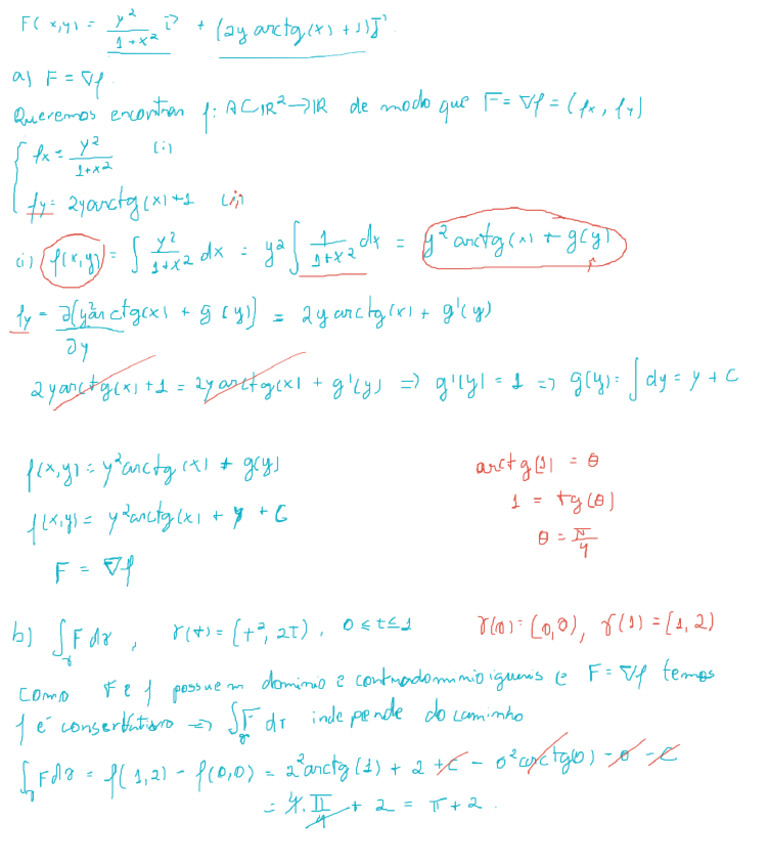 F(x,y) = y²/(1+x²) i⃗ + (2y arctg(x) + 1) j⃗
a) F = ∇f.
Queremos encontrar f: A⊂ℝ² → ℝ de modo que F = ∇f = (fx, fy)
{ fx = y²/(1+x²) (i)
fy = 2y arctg(x) + 1 (ii)
(i) f(x,y) = ∫ y²/(1+x²) dx = y² ∫ 1/(1+x²) dx = y² arctg(x) + g(y)
fy = ∂[y² arctg(x) + g(y)]/∂y = 2y arctg(x) + g'(y)
2y arctg(x) + 1 = 2y arctg(x) + g'(y) => g'(y) = 1 => g(y) = ∫ dy = y + C
f(x,y) = y² arctg(x) + g(y)
f(x,y) = y² arctg(x) + y + C
F = ∇f
arctg(1) = θ
1 = tg(θ)
θ = π/4
b) ∫γ F dr, r(t) = (t², 2t), 0 ≤ t ≤ 1 r(0) = (0,0), r(1) = (1,2)
Como F e f possuem dominio e contradominio iguais e F = ∇f temos
f é conservativo => ∫γ F dr independe do caminho
∫γ F dr = f(1,2) - f(0,0) = 2² arctg(1) + 2 + C - 0² arctg(0) - 0 - C
= 4 · π/4 + 2 = π + 2.